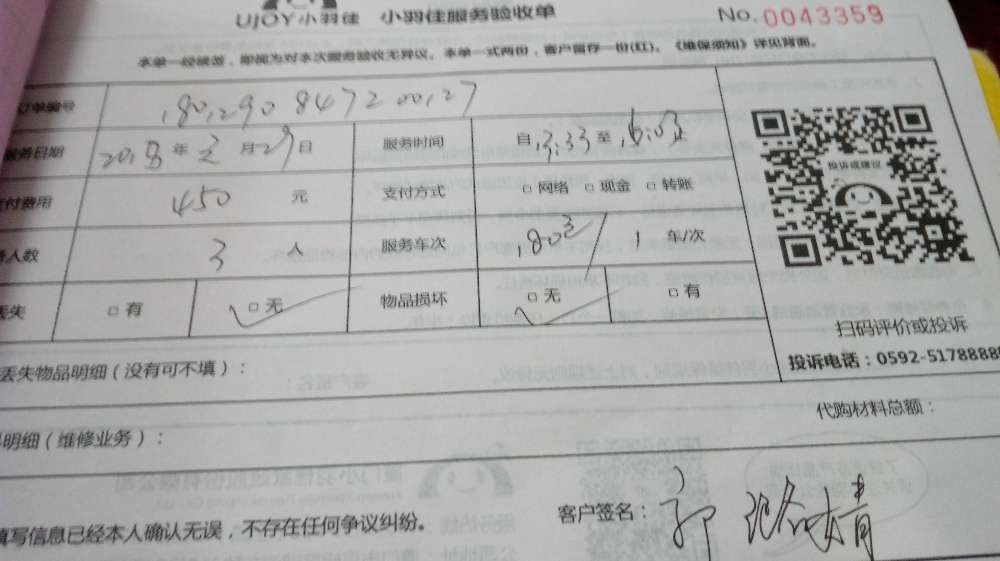 UJOY小羽佳 小羽佳服务验收单 No. 0043359
本单一经签署，即视为对本次服务验收无异议。本单一式两份，客户留存一份(红)。《维保须知》详见背面。
订单编号 180129084720027
服务日期 年 月29日 服务时间 自13:33至16:03止
付费用 450 元 支付方式 □ 网络 □ 现金 □ 转账
人数 3 人 服务车次 1 年/次
丢失 □ 有 □ 无 物品损坏 □ 无 □ 有
投诉或建议
扫码评价或投诉
投诉电话：0592-5178888
丢失物品明细（没有可不填）：
代购材料总额：
明细（维修业务）：
填写信息已经本人确认无误，不存在任何争议纠纷。 客户签名：